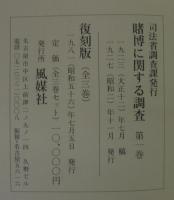 司法省調査課発行
賭博に関する調査 第一巻
一九二三(大正十二)年七月 稿
一九二七(昭和二)年十一月 発行
復刻版(全三巻)
一九八一(昭和五十六)年七月五日 発行
定価(全三巻セット)一〇、〇〇〇円
発行所 風媒社
名古屋市中区上前津